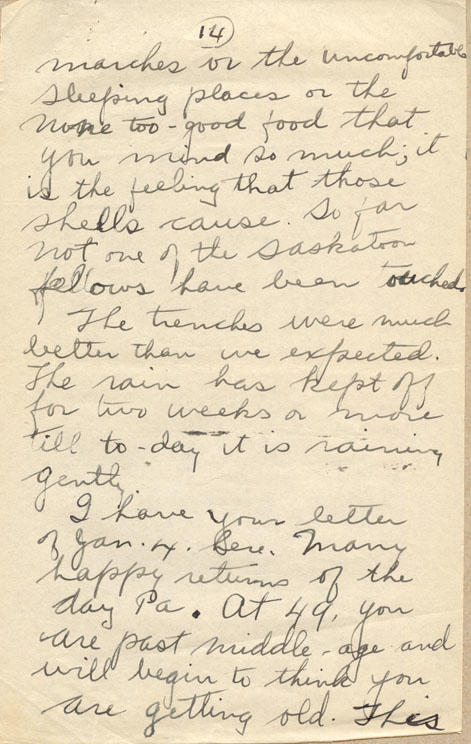 14
marches or the uncomfortable
sleeping places or the
none too-good food that
you mind so much; it
is the feeling that those
shells cause. So far
not one of the Saskatoon
fellows have been touched.
The trenches were much
better than we expected.
The rain has kept off
for two weeks or more
till to-day it is raining
gently.
I have your letter
of Jan. 4. here. Many
happy returns of the
day Pa. At 49, you
are past middle-age and
will begin to think you
are getting old. This